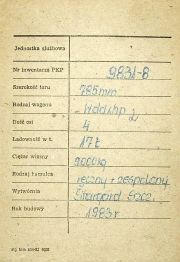 Jednostka służbowa
Nr inwentarza PKP 9831-8
Szerokość toru 785mm
Rodzaj wagonu Wddxhp 2
Ilość osi 4
Ładowność w t. 17t
Ciężar własny 9000kg
Rodzaj hamulca ręczny + zespolony
Wytwórnia
Rok budowy 1983r